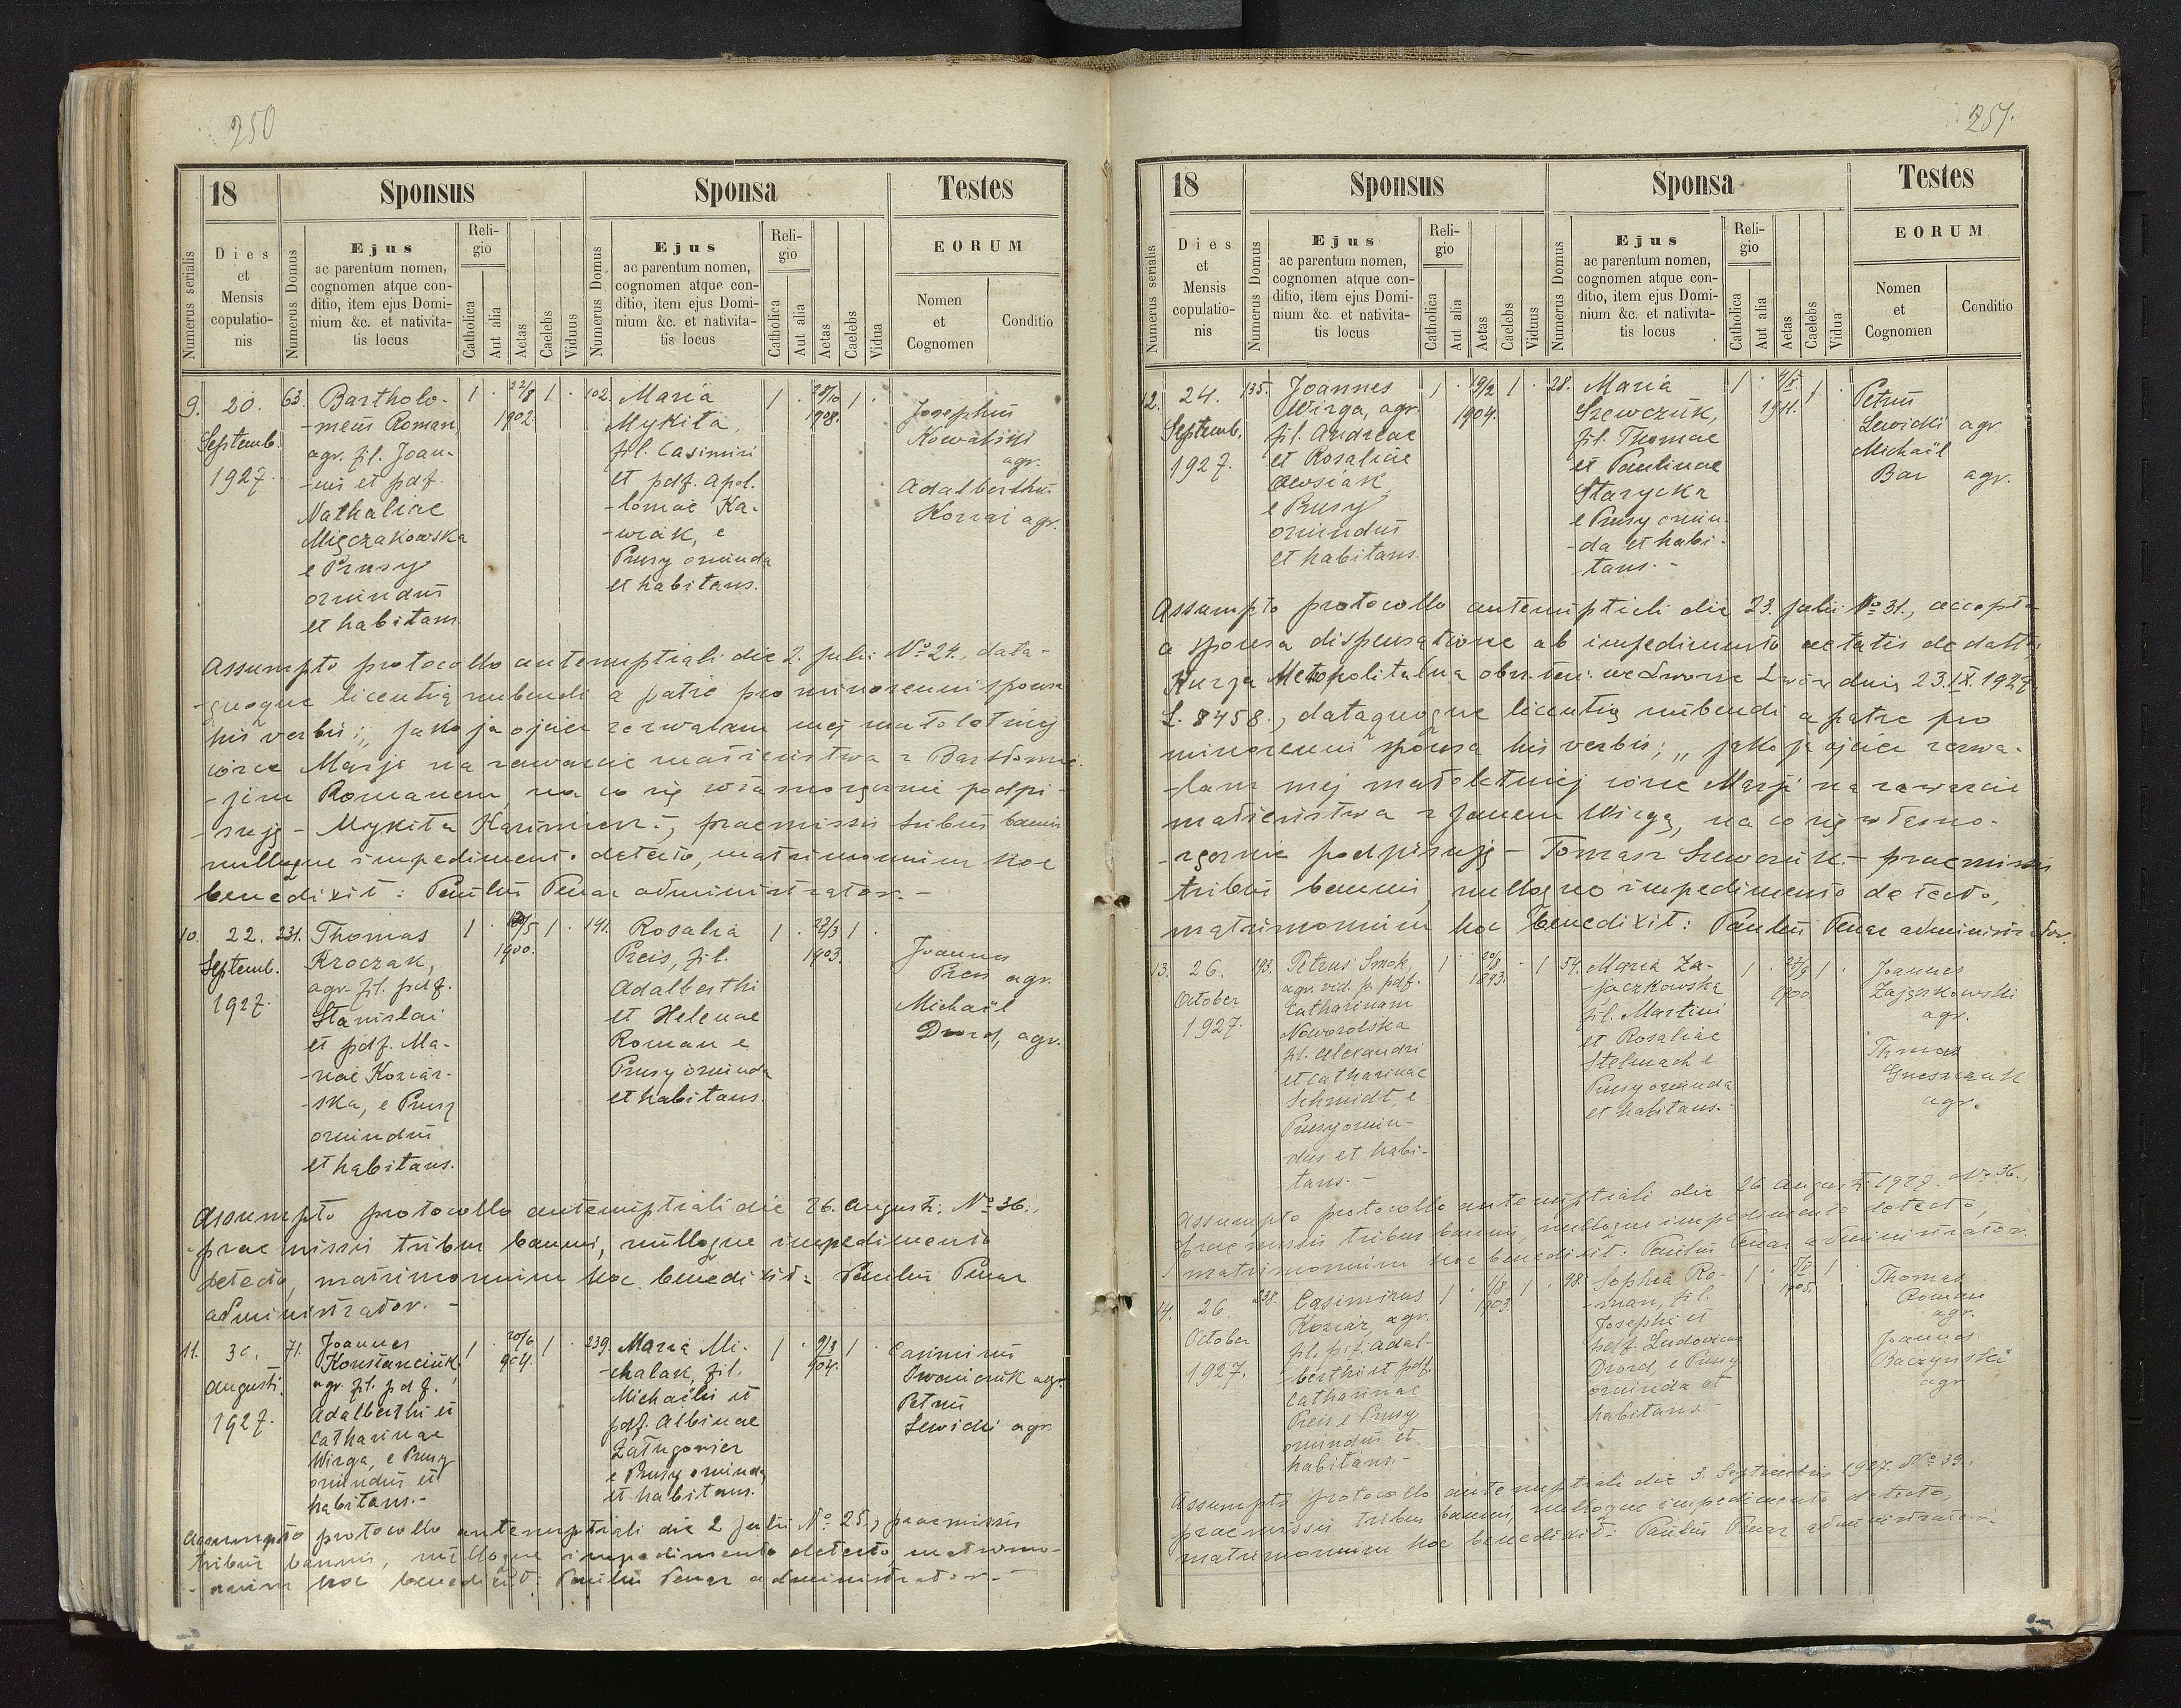 250
18
Sponsus
Sponsa
Testes
Numerus serialis
Dies
et
Mensis
copulatio-
nis
Numerus Domus
Ejus
ac parentum nomen,
cognomen atque con-
ditio, item ejus Domi-
nium &c. et nativita-
tis locus
Reli-
gio
Catholica
Aut alia
Aetas
Caelebs
Viduus
Numerus Domus
Ejus
ac parentum nomen,
cognomen atque con-
ditio, item ejus Domi-
nium &c. et nativita-
tis locus
Reli-
gio
Catholica
Aut alia
Aetas
Caelebs
Vidua
EORUM
Nomen
et
Cognomen
Conditio
9.
20.
Septemb.
1927.
63.
Bartholo-
-meus Roman,
agr. fil. Joan-
-nis et pdf.
Nathaliae
Mięczakowska
e Prusy
oriundus
et habitans.
1 . 22/8 1 .
1902.
102.
Maria
Mykita,
fil. Casimiri
et pdf. Apol-
-loniae Ka-
-wiak, e
Prusy oriunda
et habitans.
1 . 28/10 1 .
1908.
Josephus
Kowalski
agr.
Adalberthus
Korzai agr.
Assumpto protocollo antenuptiali die 2. Julii No 24., data-
-quoque licentią nubendi a patre pro minorenni sponsa
his verbis: „ Jako ja ojciec zezwalam mej małoletniej
córce Marji na zawarcie małżeństwa z Bartłomie-
-jem Romanem, na co się własnoręcznie podpi-
-suję - Mykita Kazimierz -, praemissis tribus bannis
nulloque impedimento detecto, matrimonium hoc
benedixit: Paulus Penar administrator. -
10.
22.
Septemb.
1927.
231.
Thomas
Kroczak,
agr. fil. pdf.
Stanislai
et pdf. Ma-
-riae Koziar-
-ska, e Prusy
oriundus
et habitans.
1 . 20/5 1 .
1900.
141.
Rosalia
Preis, fil.
Adalberthi
et Helenae
Roman e
Prusy oriunda
et habitans.
1 . 22/3 1 .
1903.
Joannes
Preis agr.
Michaël
Drozd, agr.
Assumpto protocollo antenuptiali die 26. Augusti No 36.,
praemissis tribus bannis, nulloque impedimento
detecto, matrimonium hoc benedixit: Paulus Penar
administrator. -
11.
30.
Augusti
1927.
71.
Joannes
Konstanciuk
agr. fil. pdf.
Adalberthi et
Catharinae
Wirga, e Prusy
oriundus et
habitans. -
1 . 20/6 1 .
904.
239.
Maria Mi-
-chalak, fil.
Michaëlis et
pdf. Albinae
Załugowicz
e Prusy oriunda
et habitans.
1 . 9/3 1 .
904.
Casimirus
Iwaniczuk agr.
Petrus
Lewicki agr.
Assumpto protocollo antenuptiali die 2 Julii No 25., praemissis
tribus bannis, nulloque impedimento detecto, matrimo-
-nium hoc benedixit: Paulus Penar administrator. -
251.
18
Sponsus
Sponsa
Testes
Numerus serialis
Dies
et
Mensis
copulatio-
nis
Numerus Domus
Ejus
ac parentum nomen,
cognomen atque con-
ditio, item ejus Domi-
nium &c. et nativita-
tis locus
Reli-
gio
Catholica
Aut alia
Aetas
Caelebs
Viduus
Numerus Domus
Ejus
ac parentum nomen,
cognomen atque con-
ditio, item ejus Domi-
nium &c. et nativita-
tis locus
Reli-
gio
Catholica
Aut alia
Aetas
Caelebs
Vidua
EORUM
Nomen
et
Cognomen
Conditio
12.
24.
Septemb.
1927.
135.
Joannes
Wirga, agr.
fil. Andreae
et Rosaliae
e Prusy
oriundus
et habitans.
1 . 19/2 1 .
1904.
28.
Maria
Szewczuk,
fil. Thomae
et Paulinae
Starycka
e Prusy oriun-
-da et habi-
-tans. -
1 . 4/8 1 .
1911.
Petrus
Lewicki agr.
Michaël
Bar agr.
Assumpto protocollo antenuptiali die 23. Julii No 31., accepta
a sponsa dispensatione ab impedimento aetatis de datto,
Kurza Metropolitalna obrz. łac. we Lwowie Lwów dnia 23.IX.1927
L. 8458., dataquoque licentią nubendi a patre pro
minorenni sponsa his verbis; „ Jako ja ojciec zezwa-
-lam mej małoletniej córce Marji na zawarcie
małżeństwa z Janem Wirgą, na co się własno-
-ręcznie podpisuję - Tomasz Szewczuk. - praemissis
tribus bannis, nulloque impedimento detecto,
matrimonium hoc benedixit: Paulus Penar administrator.
13.
26.
October
1927.
193.
Petrus Smok,
agr. vid. p. pdf.
Catharinam
Nowarolska
fil. Alexandri
et Catharinae
Schmidt, e
Prusy oriun-
dus et habi-
-tans. -
1 . 20/8 . 1
1893.
54.
Maria Za-
-jączkowska
fil. Martini
et Rosaliae
Stelmach e
Prusy oriunda
et habitans. -
1 . 27/9 1 .
1900.
Joannes
Zajączkowski
agr.
Thomas
Greszczak
agr.
Assumpto protocollo antenuptiali die 26 Augusti 1927. No 36.,
praemissis tribus bannis, nulloque impedimento detecto,
matrimonium hoc benedixit: Paulus Penar administrator.
14.
26
October
1927.
238.
Casimirus
Koziar agr.
fil. pdf. Adal-
-berthi et pdf.
Catharinae
Preis e Prusy
oriundus et
habitans. -
1 . 1/8 1 .
1903.
98.
Sophia Ro-
-man, fil.
Josephi et
pdf. Ludovicae
Drozd, e Prusy
oriunda et
habitans. -
1 . 1 .
1905.
Thomas
Roman
agr.
Joannes
Baczyński
agr.
Assumpto protocollo antenuptiali die 3. Septembris 1927. No 39.,
praemissis tribus bannis, nulloque impedimento detecto,
matrimonium hoc benedixit: Paulus Penar administrator.